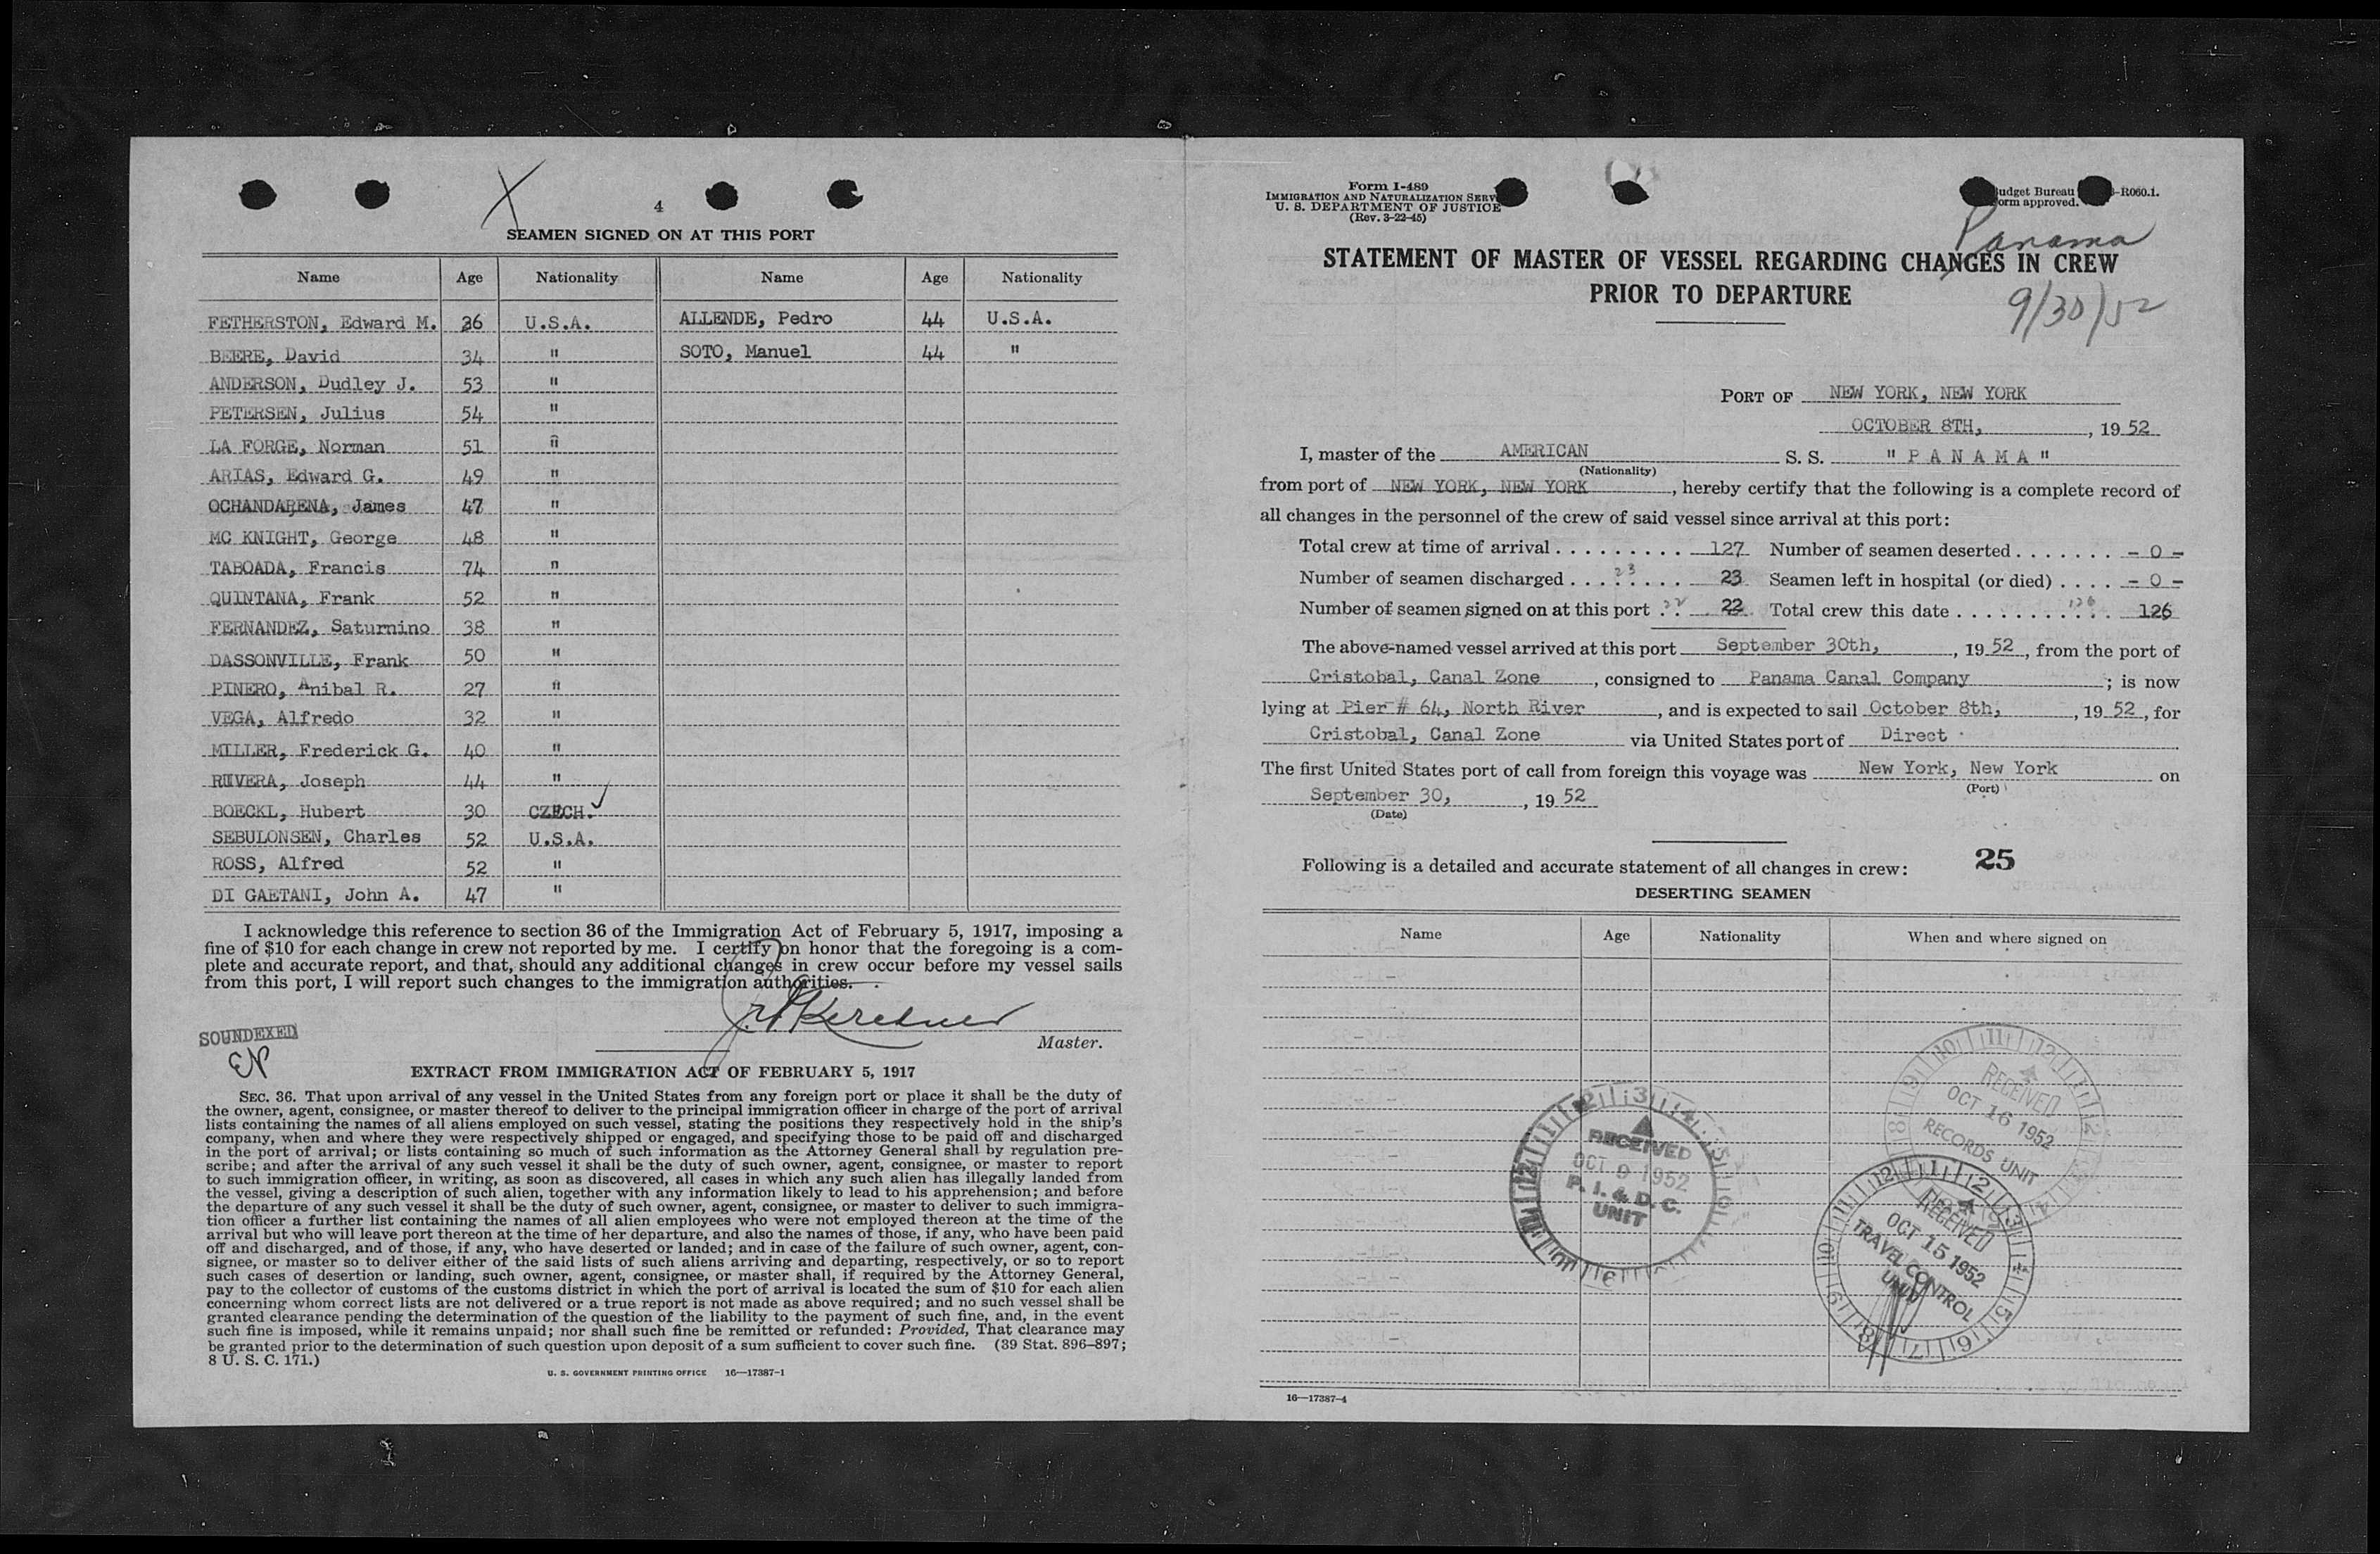 4
SEAMEN SIGNED ON AT THIS PORT
Name Age Nationality Name Age Nationality
FETHERSTON, Edward M. 36 U.S.A. ALLENDE, Pedro 44 U.S.A.
BEERE, David 34 " SOTO, Manuel 44 "
ANDERSON, Dudley J. 53 "
PETERSEN, Julius 54 "
LA FORGE, Norman 51 "
ARIAS, Edward G. 49 "
OCHANDARENA, James 47 "
MC KNIGHT, George 48 "
TABOADA, Francis 74 "
QUINTANA, Frank 52 "
FERNANDEZ, Saturnino 38 "
DASSONVILLE, Frank 50 "
PINERO, Anibal R. 27 "
VEGA, Alfredo 32 "
MILLER, Frederick G. 40 "
RIVERA, Joseph 44 "
BOECKL, Hubert 30 CZECH.
SEBULONSEN, Charles 52 U.S.A.
ROSS, Alfred 52 "
DI GAETANI, John A. 47 "
I acknowledge this reference to section 36 of the Immigration Act of February 5, 1917, imposing a
fine of $10 for each change in crew not reported by me. I certify on honor that the foregoing is a com-
plete and accurate report, and that, should any additional changes in crew occur before my vessel sails
from this port, I will report such changes to the immigration authorities.
SOUNDEXED
EN
Master.
EXTRACT FROM IMMIGRATION ACT OF FEBRUARY 5, 1917
SEC. 36. That upon arrival of any vessel in the United States from any foreign port or place it shall be the duty of
the owner, agent, consignee, or master thereof to deliver to the principal immigration officer in charge of the port of arrival
lists containing the names of all aliens employed on such vessel, stating the positions they respectively hold in the ship's
company, when and where they were respectively shipped or engaged, and specifying those to be paid off and discharged
in the port of arrival; or lists containing so much of such information as the Attorney General shall by regulation pre-
scribe; and after the arrival of any such vessel it shall be the duty of such owner, agent, consignee, or master to report
to such immigration officer, in writing, as soon as discovered, all cases in which any such alien has illegally landed from
the vessel, giving a description of such alien, together with any information likely to lead to his apprehension; and before
the departure of any such vessel it shall be the duty of such owner, agent, consignee, or master to deliver to such immigra-
tion officer a further list containing the names of all alien employees who were not employed thereon at the time of the
arrival but who will leave port thereon at the time of her departure, and also the names of those, if any, who have been paid
off and discharged, and of those, if any, who have deserted or landed; and in case of the failure of such owner, agent, con-
signee, or master so to deliver either of the said lists of such aliens arriving and departing, respectively, or so to report
such cases of desertion or landing, such owner, agent, consignee, or master shall, if required by the Attorney General,
pay to the collector of customs of the customs district in which the port of arrival is located the sum of $10 for each alien
concerning whom correct lists are not delivered or a true report is not made as above required; and no such vessel shall be
granted clearance pending the determination of the question of the liability to the payment of such fine, and, in the event
such fine is imposed, while it remains unpaid; nor shall such fine be remitted or refunded: Provided, That clearance may
be granted prior to the determination of such question upon deposit of a sum sufficient to cover such fine. (39 Stat. 896–897;
8 U. S. C. 171.)
U. S. GOVERNMENT PRINTING OFFICE 16—17387-1
Form I-489
IMMIGRATION AND NATURALIZATION SERV
U. S. DEPARTMENT OF JUSTICE
(Rev. 3-22-45)
udget Bureau -R060.1.
orm approved.
Panama
STATEMENT OF MASTER OF VESSEL REGARDING CHANGES IN CREW
PRIOR TO DEPARTURE
9/30/52
PORT OF NEW YORK, NEW YORK
OCTOBER 8TH, , 19 52
I, master of the AMERICAN S. S. " P A N A M A "
(Nationality)
from port of NEW YORK, NEW YORK, hereby certify that the following is a complete record of
all changes in the personnel of the crew of said vessel since arrival at this port:
Total crew at time of arrival . . . . . . . . . 127 Number of seamen deserted . . . . . . . - 0 -
Number of seamen discharged . . . 23 . . . . 23 Seamen left in hospital (or died) . . . . - 0 -
Number of seamen signed on at this port . 22 . 22 Total crew this date . . . . . . . . 126 . . 126
The above-named vessel arrived at this port September 30th, , 19 52, from the port of
Cristobal, Canal Zone, consigned to Panama Canal Company ; is now
lying at Pier # 64, North River, and is expected to sail October 8th, , 19 52, for
Cristobal, Canal Zone via United States port of Direct
The first United States port of call from foreign this voyage was New York, New York on
(Port)
September 30, , 19 52
(Date)
Following is a detailed and accurate statement of all changes in crew: 25
DESERTING SEAMEN
Name Age Nationality When and where signed on
RECEIVED
OCT 16 1952
RECORDS UNIT
RECEIVED
OCT 9 1952
P. I. & D. C.
UNIT
RECEIVED
OCT 15 1952
TRAVEL CONTROL
UNIT
16—17387-4